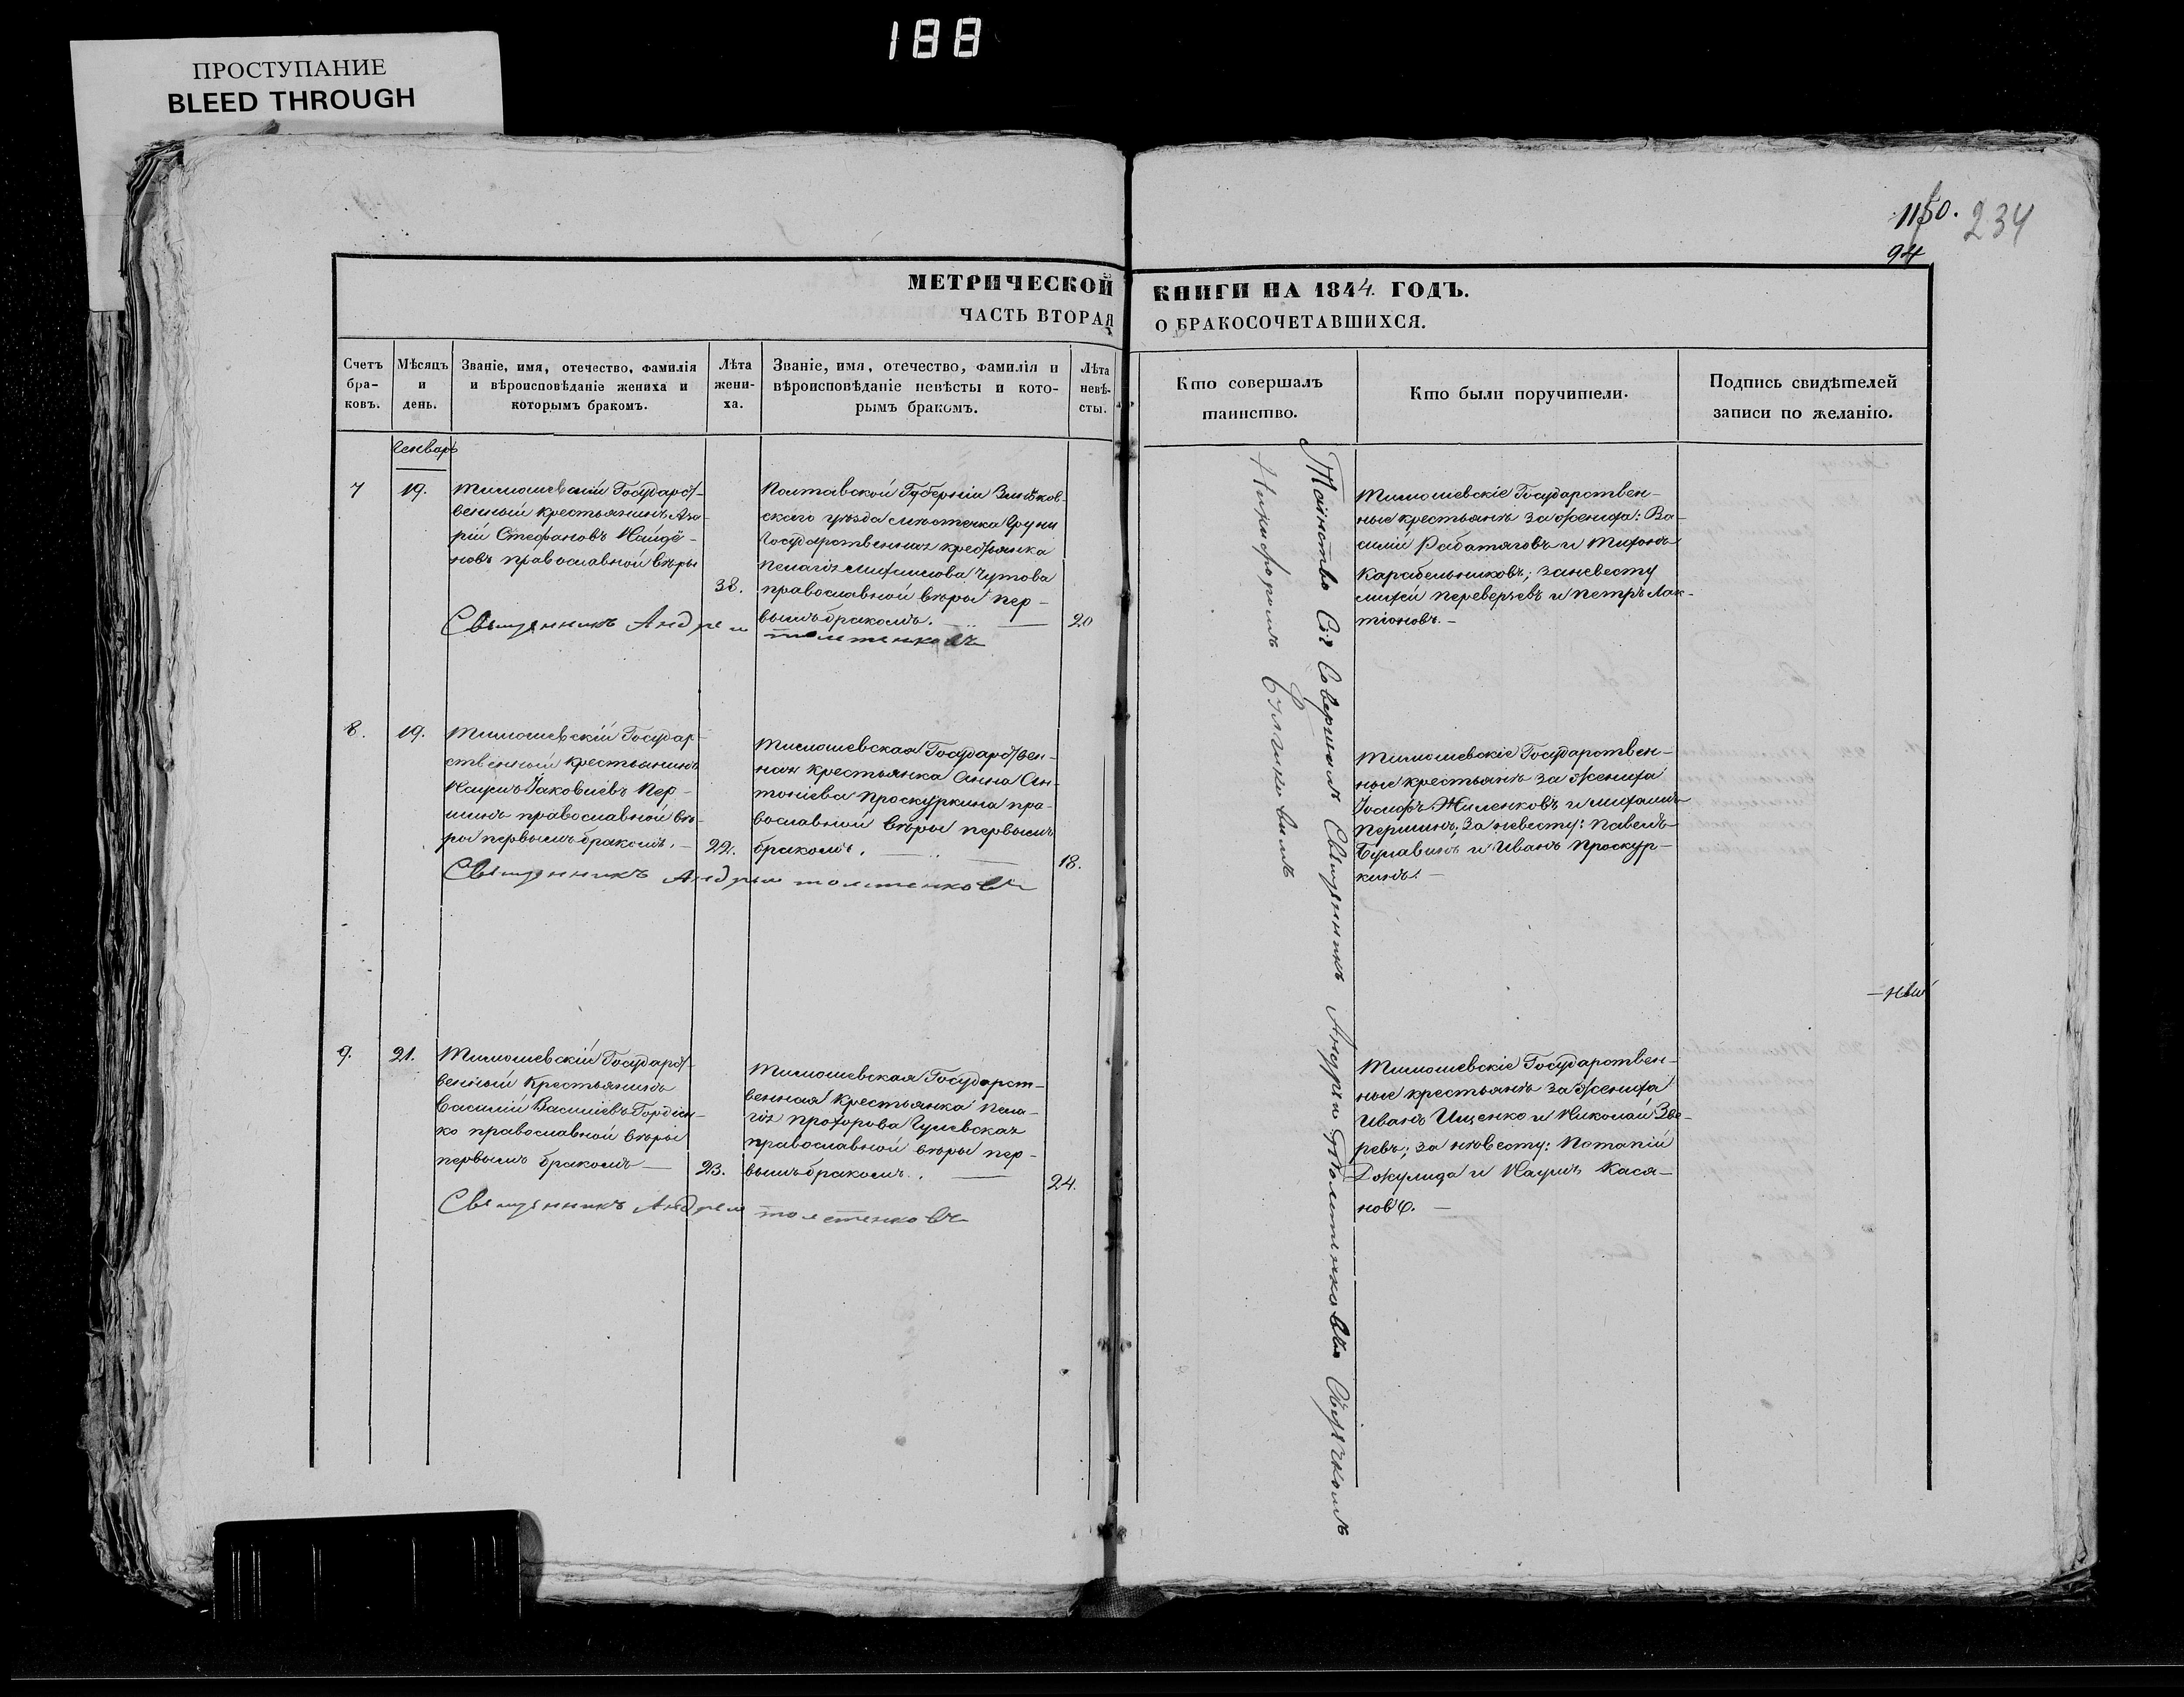 188
ПРОСТУПАНИЕ
BLEED THROUGH
1150.
234
94
МЕТРИЧЕСКОЙ КНИГИ НА 1844. ГОДЪ.
ЧАСТЬ ВТОРАЯ О БРАКОСОЧЕТАВШИХСЯ.
Счетъ
бра-
ковъ.
Мѣсяцъ
и
день.
Званіе, имя, отечество, фамилія
и вѣроисповѣданіе жениха и
которымъ бракомъ.
Лѣта
жени-
ха.
Званіе, имя, отечество, фамилія и
вѣроисповѣданіе невѣсты и кото-
рымъ бракомъ.
Лѣта
невѣ-
сты.
Кто совершалъ
таинство.
Кто были поручители.
Подпись свидѣтелей
записи по желанію.
Генварь
7
19.
Тимошевскій Государст-
венный крестьянинъ Аза-
рій Стефановъ Найдё-
новъ православной вѣры
38.
Полтавской Губерніи Зиньков-
скаго уѣзда мѣстечка Груни
Государственная крестьянка
Пелагія Михаилова Чутова
православной вѣры пер-
вымъ бракомъ.
20
Священникъ Андрей Толстенковъ
Тимошевскіе Государствен-
ные крестьянѣ за жениха: Ва-
силій Работяговъ и Тихонъ
Карабельниковъ; заневесту
Михей Переверзевъ и Петръ Лак-
тіоновъ.
8.
19.
Тимошевскій Государ-
ственный крестьянинъ
Наумъ Іаковлевъ Пер-
шинъ православной вѣ-
ры первымъ бракомъ.
22.
Тимошевская Государствен-
ная крестьянка Анна Ан-
тоніева Проскуркина пра-
вославной вѣры первымъ
бракомъ.
18.
Священникъ Андрей Толстенковъ
Тимошевскіе Государствен-
ные крестьянѣ за жениха
Іосифъ Жиленковъ и Михаилъ
Першинъ; За невесту: Павелъ
Булавинъ и Иванъ Проскур-
кинъ.
-ный
9.
21.
Тимошевскій Государст-
венный Крестьянинъ
Василій Василіевъ Гордіен-
ко православной вѣры
первымъ бракомъ
23.
Тимошевская Государст-
венная Крестьянка Пела-
гія Прохорова Гулевская
православной вѣры пер-
вымъ бракомъ.
24.
Священникъ Андрей Толстенковъ
Тимошевскіе Государствен-
ные крестьянѣ за жениха
Иванъ Ищенко и Николай Зве-
ревъ; за нѣвесту: Потапій
Джулида и Наумъ Кася-
новъ.
Таинство Сіѣ Совершалъ Священникъ Андрей Толстенковъ Съдьячкомъ
Никифоромъ